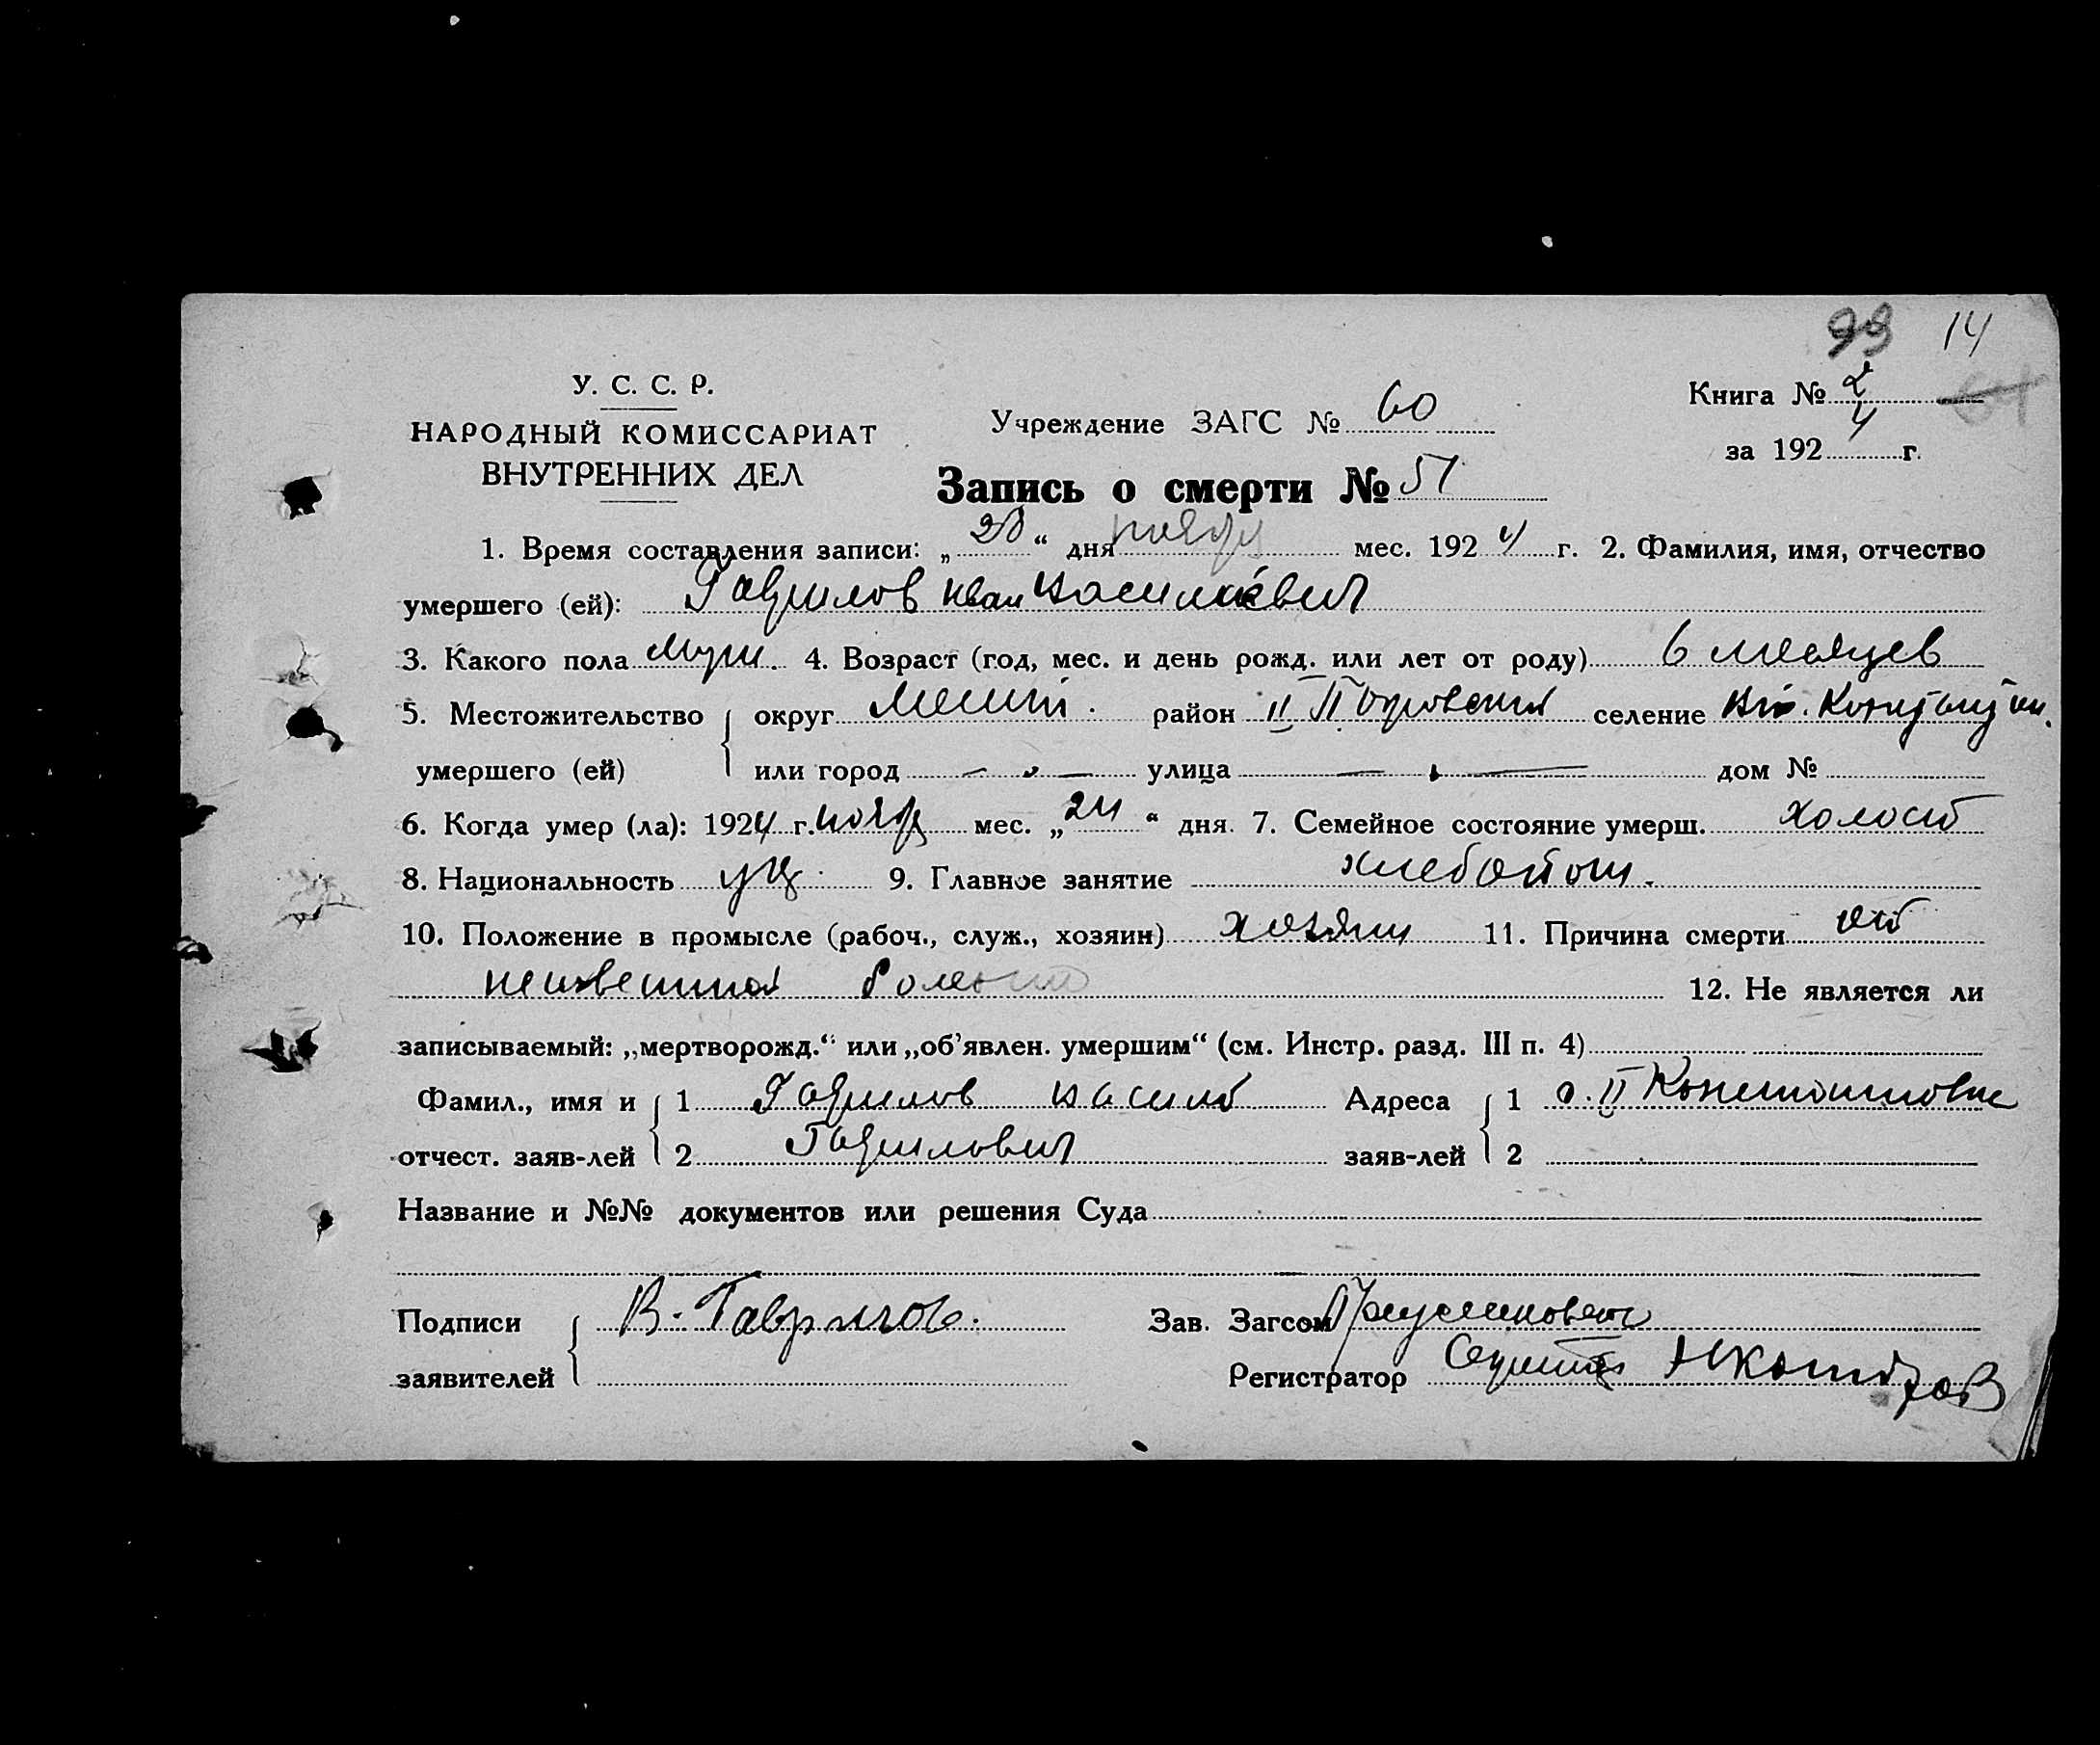 99 14
У. С. С. Р.
НАРОДНЫЙ КОМИССАРИАТ
ВНУТРЕННИХ ДЕЛ
Учреждение ЗАГС № 60
Книга № 2
за 1924 г.
Запись о смерти № 51
1. Время составления записи: „28“ дня ноябр мес. 1924 г. 2. Фамилия, имя, отчество
умершего (ей): Гаврилов Иван Василиевич
3. Какого пола муж. 4. Возраст (год, мес. и день рожд. или лет от роду) 6 месяцев
5. Местожительство округ район II селение
умершего (ей) или город — „ — улица — „ — дом №
6. Когда умер (ла): 1924 г. ноябр мес. „24“ дня. 7. Семейное состояние умерш. холост
8. Национальность укр. 9. Главное занятие хлебопаш.
10. Положение в промысле (рабоч., служ., хозяин) хозяин 11. Причина смерти от
неизвестной болезни 12. Не является ли
записываемый: „мертворожд.“ или „об’явлен. умершим“ (см. Инстр. разд. III п. 4)
Фамил., имя и 1 Гаврилов Василь Адреса 1 с. II
отчест. заяв-лей 2 Гаврилович заяв-лей 2
Название и №№ документов или решения Суда
Подписи В. Гаврилов. Зав. Загсом
заявителей Регистратор